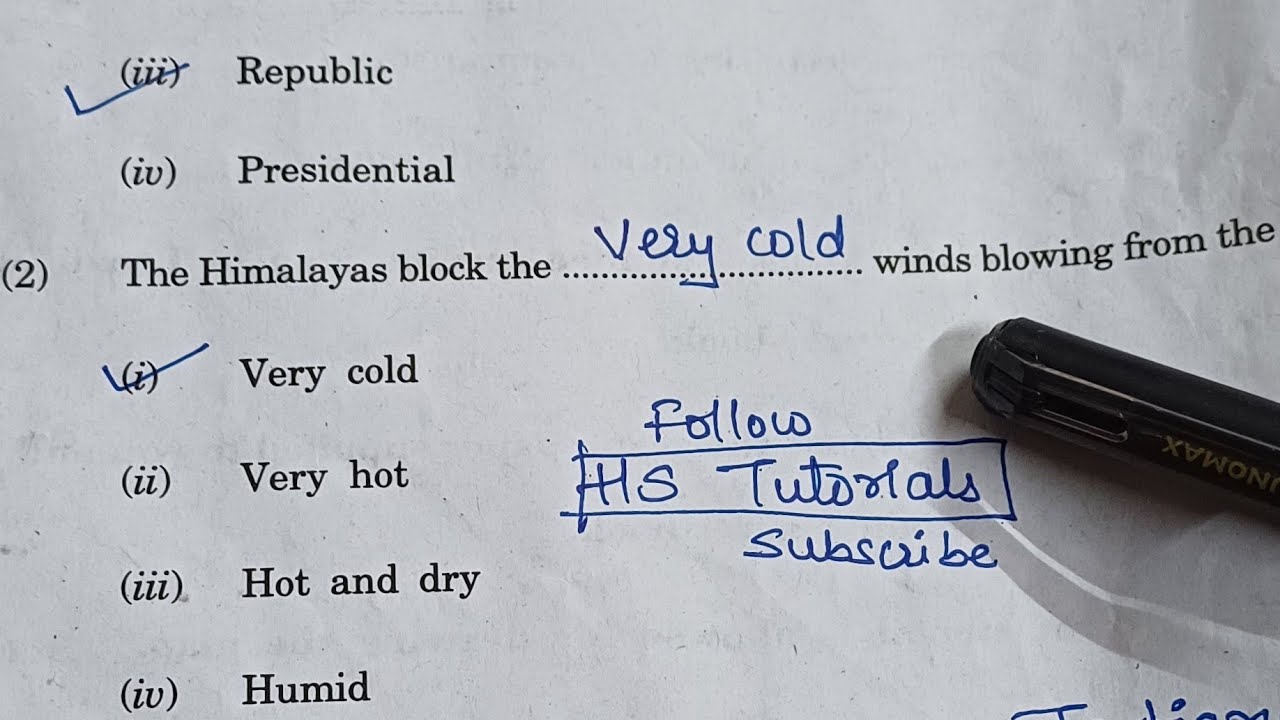 (iii) Republic
(iv) Presidential
(2) The Himalayas block the ....Very cold.... winds blowing from the
(i) Very cold
(ii) Very hot
(iii) Hot and dry
(iv) Humid
Follow
HS Tutorials
Subscribe